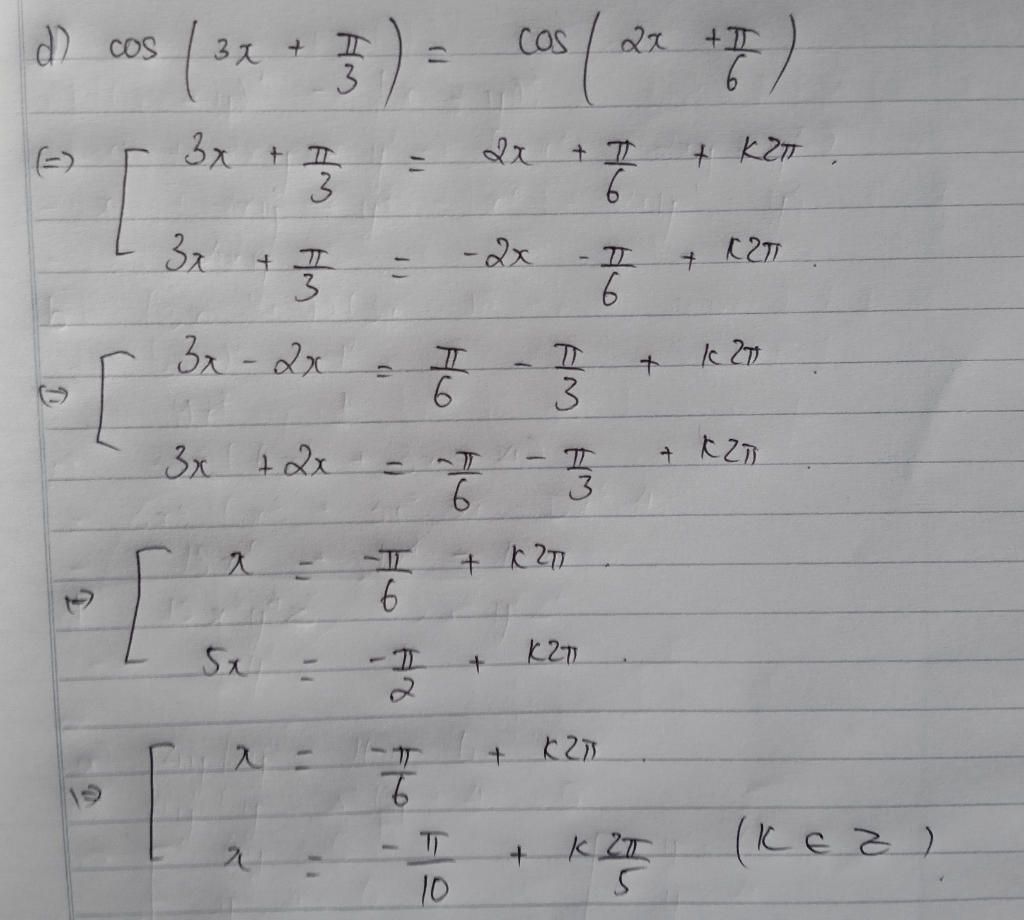 d) cos (3x + π/3) = cos (2x + π/6)
(=) [ 3x + π/3 = 2x + π/6 + k2π.
3x + π/3 = -2x - π/6 + k2π.
(=) [ 3x - 2x = π/6 - π/3 + k2π.
3x + 2x = -π/6 - π/3 + k2π.
(=) [ x = -π/6 + k2π.
5x = -π/2 + k2π.
(=) [ x = -π/6 + k2π.
x = -π/10 + k 2π/5 (k ∈ Z).